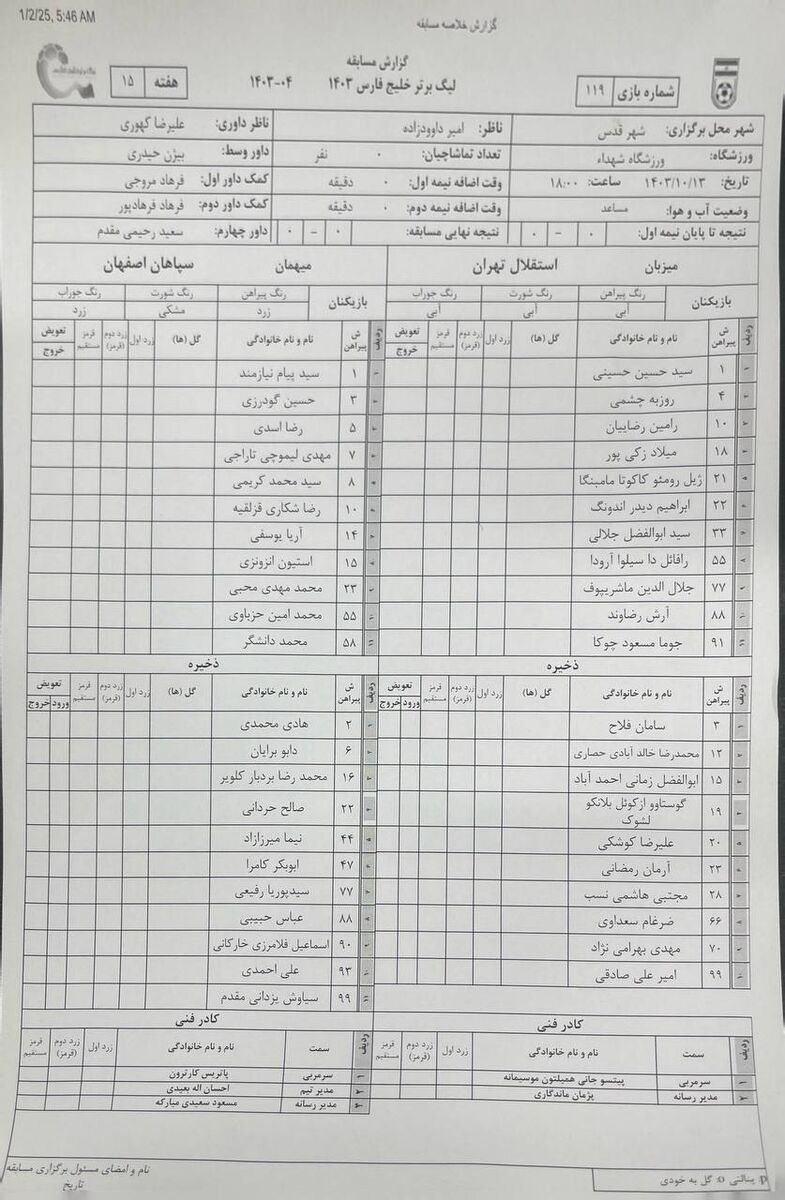 1/2/25, 5:46 AM
گزارش خلاصه مسابقه
گزارش مسابقه
شماره بازی ۱۱۹
لیگ برتر خلیج فارس ۱۴۰۳ ۱۴۰۳-۰۴
هفته ۱۵
شهر محل برگزاری: شهر قدس ناظر: امیر داوودزاده ناظر داوری: علیرضا کهوری
ورزشگاه: ورزشگاه شهداء تعداد تماشاچیان: ۰ نفر داور وسط: بیژن حیدری
تاریخ: ۱۴۰۳/۱۰/۱۳ ساعت: ۱۸:۰۰ وقت اضافه نیمه اول: ۰ دقیقه کمک داور اول: فرهاد مروجی
وضعیت آب و هوا: مساعد وقت اضافه نیمه دوم: ۰ دقیقه کمک داور دوم: فرهاد فرهادپور
نتیجه تا پایان نیمه اول: ۰ - ۰ نتیجه نهایی مسابقه: ۰ - ۰ داور چهارم: سعید رحیمی مقدم
میزبان استقلال تهران
بازیکنان رنگ پیراهن رنگ شورت رنگ جوراب
آبی آبی آبی
ردیف ش پیراهن نام و نام خانوادگی گل (ها) زرد اول زرد دوم (قرمز) قرمز مستقیم تعویض خروج
۱ ۱ سید حسین حسینی
۲ ۴ روزبه چشمی
۳ ۱۰ رامین رضاییان
۴ ۱۸ میلاد زکی پور
۵ ۲۱ ژیل رومئو کاکوتا مامبنگا
۶ ۲۲ ابراهیم دیدر اندونگ
۷ ۳۳ سید ابوالفضل جلالی
۸ ۵۵ رافائل دا سیلوا آرودا
۹ ۷۷ جلال الدین ماشریپوف
۱۰ ۸۸ آرش رضاوند
۱۱ ۹۱ جوما مسعود چوکا
ذخیره
ردیف ش پیراهن نام و نام خانوادگی گل (ها) زرد اول زرد دوم (قرمز) قرمز مستقیم تعویض ورود خروج
۱ ۳ سامان فلاح
۲ ۱۲ محمدرضا خالد آبادی حصاری
۳ ۱۵ ابوالفضل زمانی احمد آباد
۴ ۱۹ گوستاوو ازکوئل بلانکو
لشوک
۵ ۲۰ علیرضا کوشکی
۶ ۲۳ آرمان رمضانی
۷ ۲۸ مجتبی هاشمی نسب
۸ ۶۶ ضرغام سعداوی
۹ ۷۰ مهدی بهرامی نژاد
۱۰ ۹۹ امیر علی صادقی
کادر فنی
ردیف سمت نام و نام خانوادگی زرد اول زرد دوم (قرمز) قرمز مستقیم
۱ سرمربی پیتسو جانی همیلتون موسیمانه
۲ مدیر رسانه پژمان ماندگاری
میهمان سپاهان اصفهان
بازیکنان رنگ پیراهن رنگ شورت رنگ جوراب
زرد مشکی زرد
ردیف ش پیراهن نام و نام خانوادگی گل (ها) زرد اول زرد دوم (قرمز) قرمز مستقیم تعویض خروج
۱ ۱ سید پیام نیازمند
۲ ۳ حسین گودرزی
۳ ۵ رضا اسدی
۴ ۷ مهدی لیموچی تاراجی
۵ ۸ سید محمد کریمی
۶ ۱۰ رضا شکاری قزلقیه
۷ ۱۴ آریا یوسفی
۸ ۱۵ استیون انزونزی
۹ ۲۳ محمد مهدی محبی
۱۰ ۵۵ محمد امین حزباوی
۱۱ ۵۸ محمد دانشگر
ذخیره
ردیف ش پیراهن نام و نام خانوادگی گل (ها) زرد اول زرد دوم (قرمز) قرمز مستقیم تعویض ورود خروج
۱ ۲ هادی محمدی
۲ ۶ دابو برایان
۳ ۱۶ محمد رضا بردبار کلویر
۴ ۲۲ صالح حردانی
۵ ۴۴ نیما میرزازاد
۶ ۴۷ ابوبکر کامرا
۷ ۷۷ سیدپوریا رفیعی
۸ ۸۸ عباس حبیبی
۹ ۹۰ اسماعیل فلامرزی خارکانی
۱۰ ۹۳ علی احمدی
۱۱ ۹۹ سیاوش یزدانی مقدم
کادر فنی
ردیف سمت نام و نام خانوادگی زرد اول زرد دوم (قرمز) قرمز مستقیم
۱ سرمربی پاتریس کارترون
۲ مدیر تیم احسان اله بعیدی
۳ مدیر رسانه مسعود سعیدی مبارکه
p: پنالتی o: گل به خودی
نام و امضای مسئول برگزاری مسابقه
تاریخ